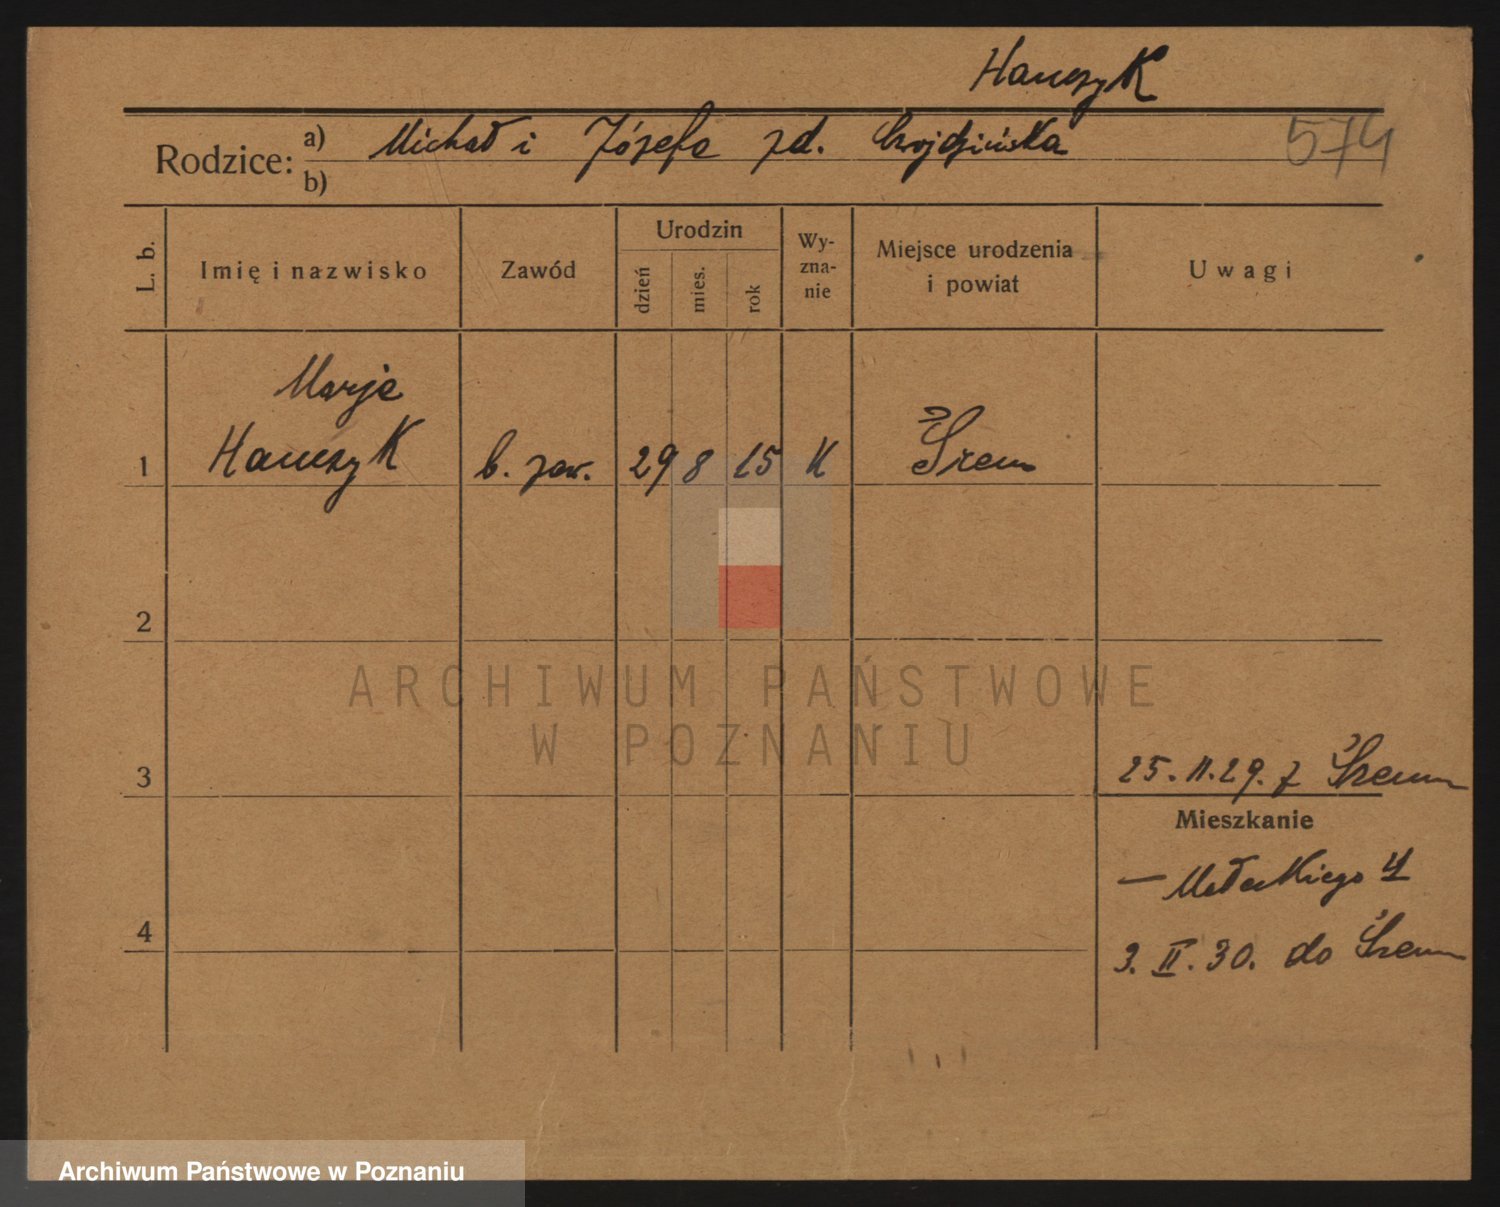 Hanczyk
Rodzice: a) Michał i Józefa zd.
574
b)
L. b.
Imię i nazwisko
Zawód
Urodzin
dzień
mies.
rok
Wy-
zna-
nie
Miejsce urodzenia
i powiat
Uwagi
Marja
1 Hanczyk b. zaw. 29 8 15 K Śrem
2
ARCHIWUM PAŃSTWOWE
W POZNANIU
3
25. II. 29. z Śrem
Mieszkanie
— Małeckiego 4
4
3. II. 30. do Śrem
Archiwum Państwowe w Poznaniu